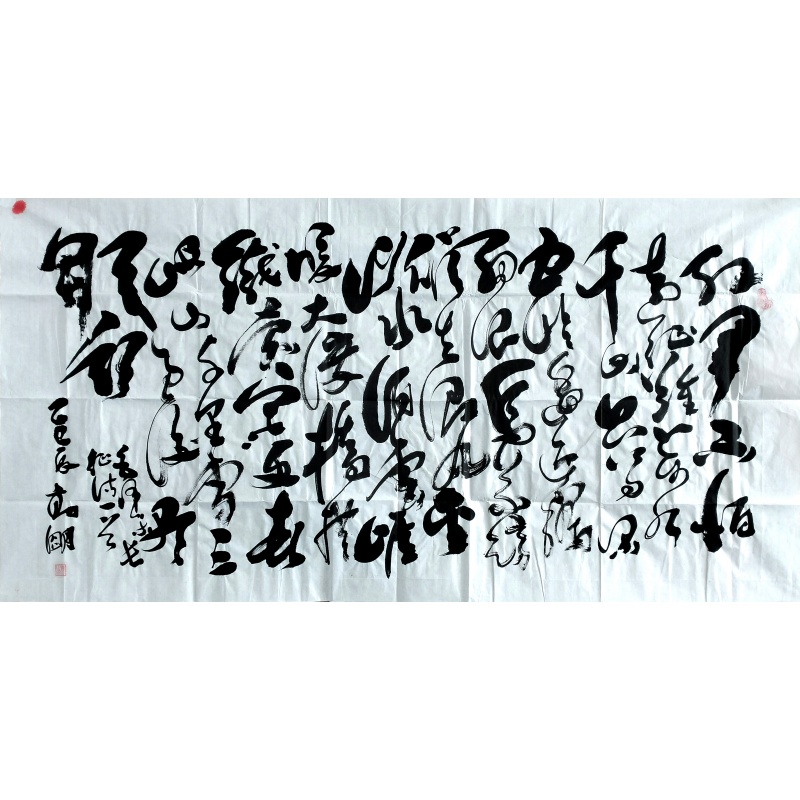 红军不怕
远征难万水
千山只等闲
五岭逶迤腾
细浪乌蒙磅
礴走泥丸金
沙水拍云崖
暖大渡桥横
铁索寒更喜
岷山千里雪三
军过后尽
开颜
毛泽东长
征诗一首
乙巳